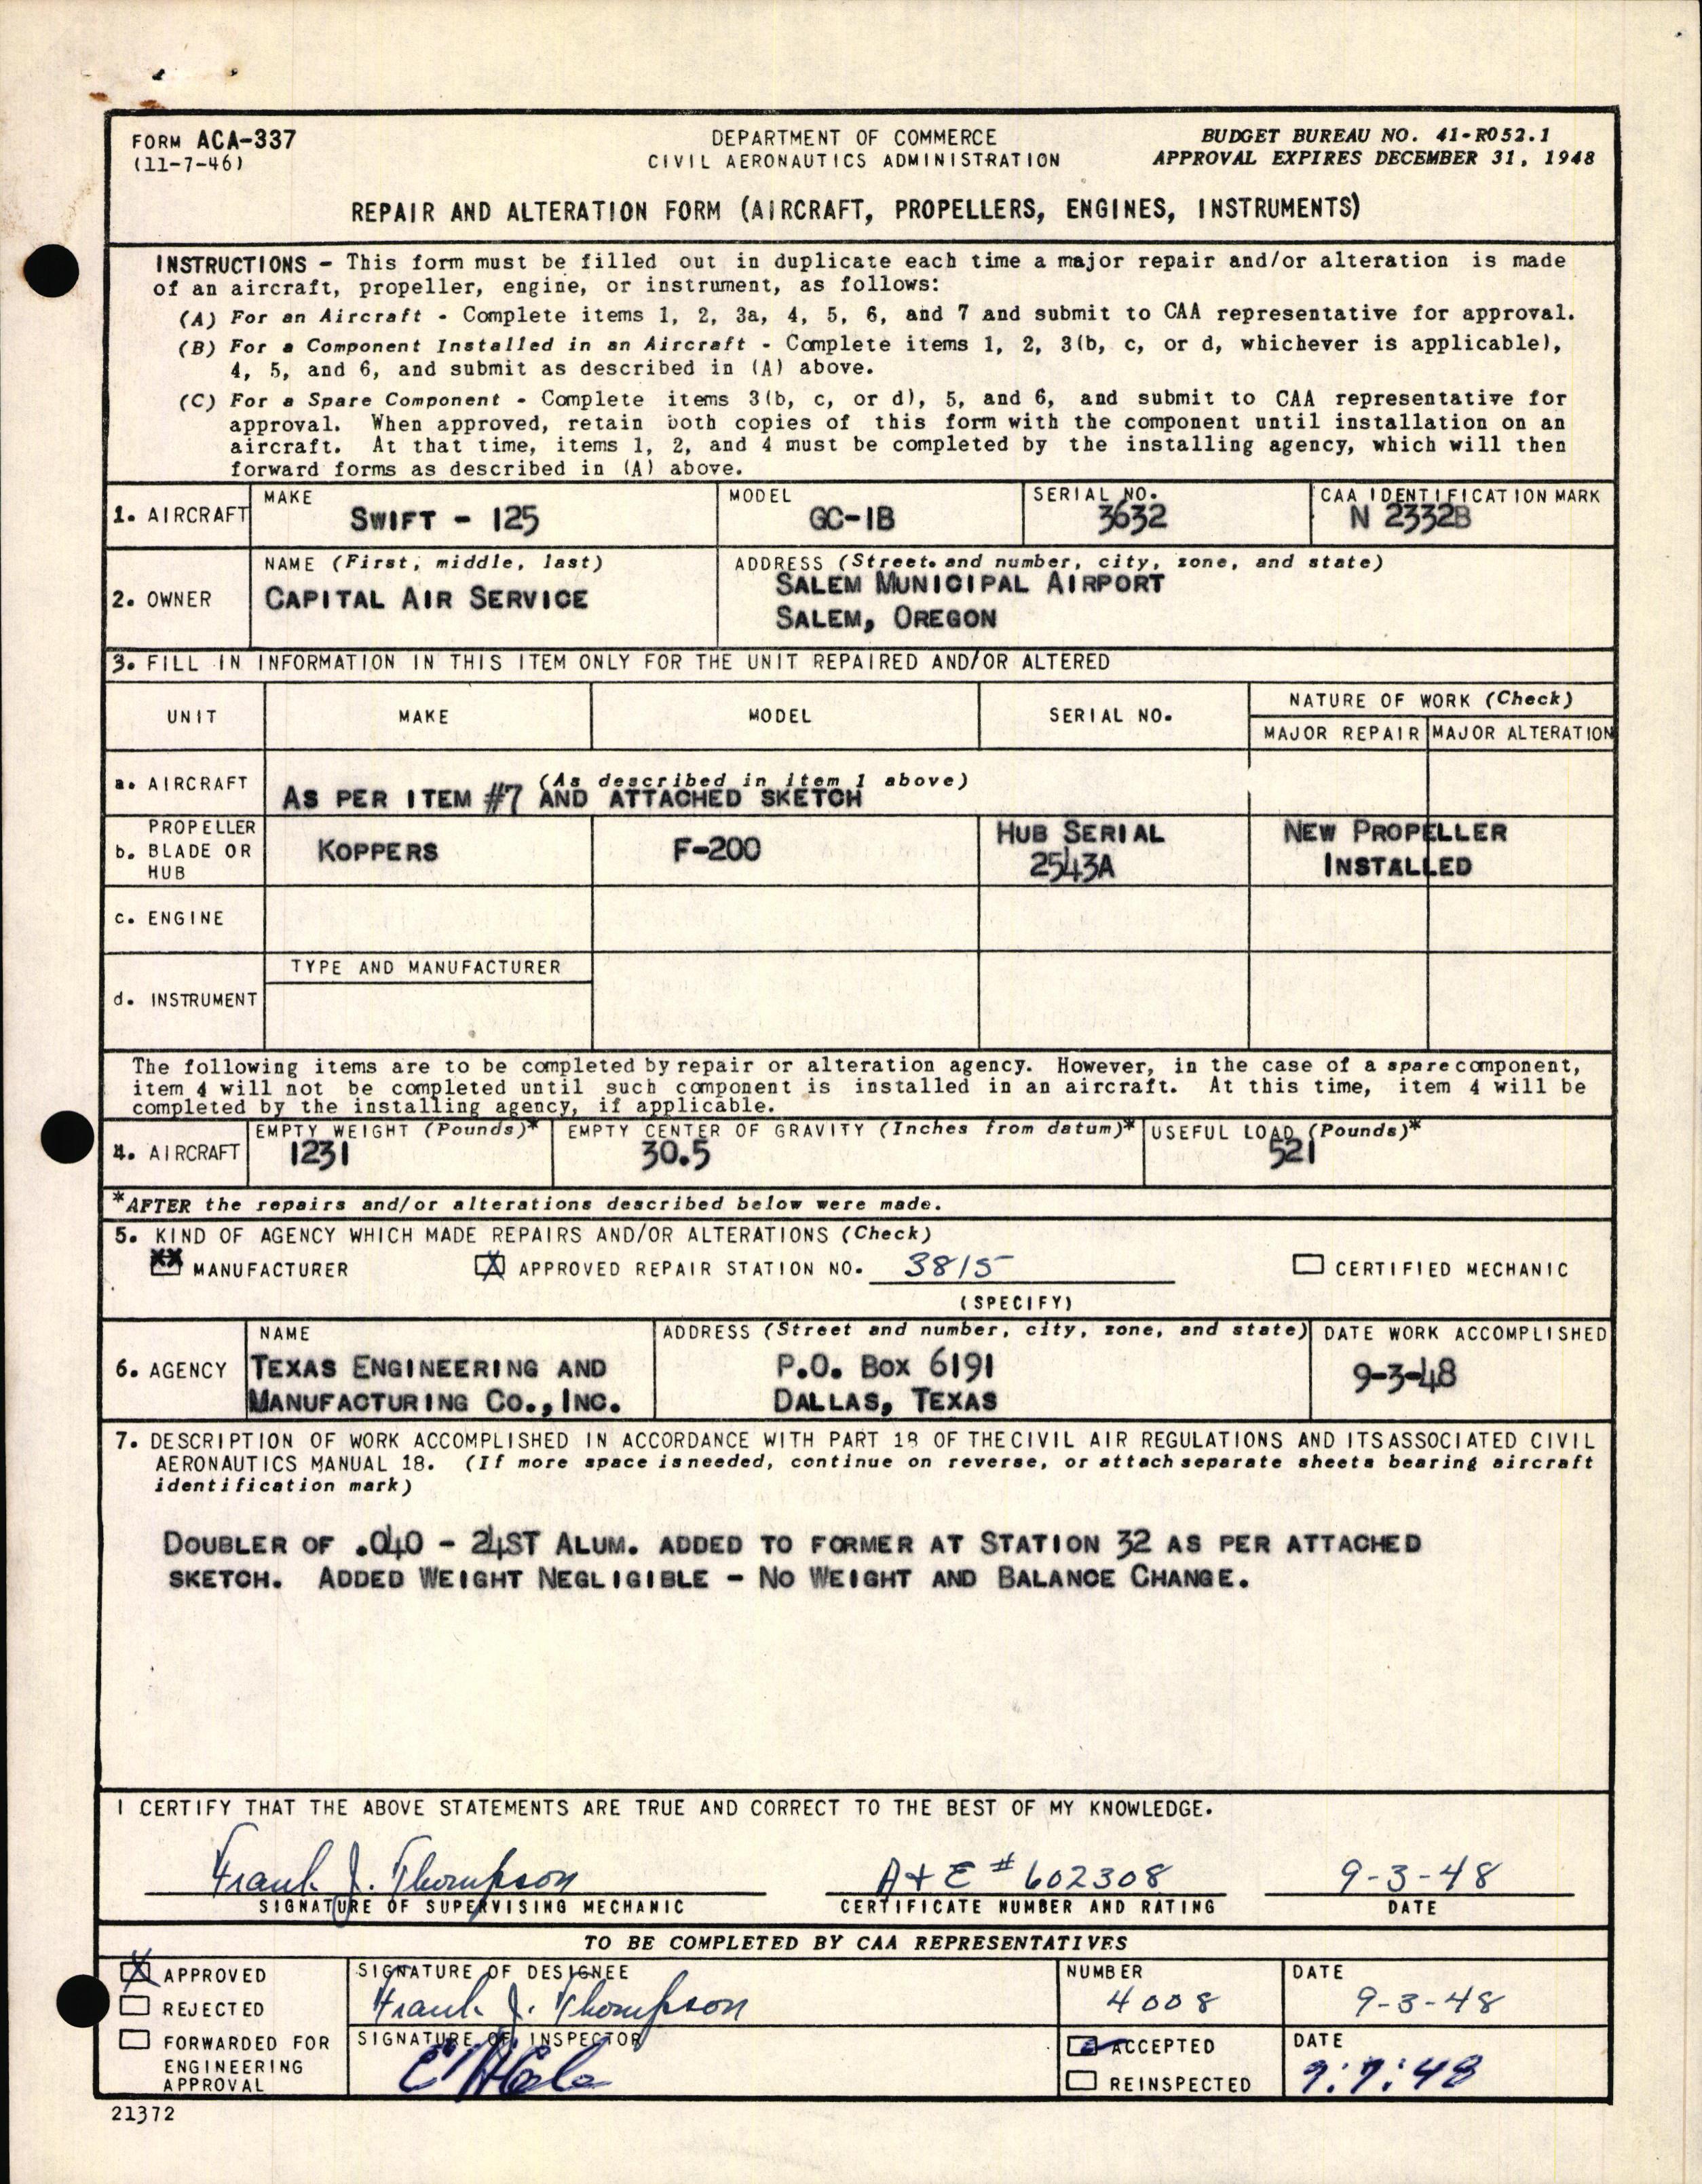 FORM ACA-337
(11-7-46)
DEPARTMENT OF COMMERCE
CIVIL AERONAUTICS ADMINISTRATION
BUDGET BUREAU NO. 41-R052.1
APPROVAL EXPIRES DECEMBER 31, 1948
REPAIR AND ALTERATION FORM (AIRCRAFT, PROPELLERS, ENGINES, INSTRUMENTS)
INSTRUCTIONS - This form must be filled out in duplicate each time a major repair and/or alteration is made
of an aircraft, propeller, engine, or instrument, as follows:
(A) For an Aircraft - Complete items 1, 2, 3a, 4, 5, 6, and 7 and submit to CAA representative for approval.
(B) For a Component Installed in an Aircraft - Complete items 1, 2, 3(b, c, or d, whichever is applicable),
4, 5, and 6, and submit as described in (A) above.
(C) For a Spare Component - Complete items 3(b, c, or d), 5, and 6, and submit to CAA representative for
approval. When approved, retain both copies of this form with the component until installation on an
aircraft. At that time, items 1, 2, and 4 must be completed by the installing agency, which will then
forward forms as described in (A) above.
1. AIRCRAFT
MAKE
SWIFT - 125
MODEL
GC-1B
SERIAL NO.
3632
CAA IDENTIFICATION MARK
N 2332B
2. OWNER
NAME (First, middle, last)
CAPITAL AIR SERVICE
ADDRESS (Street. and number, city, zone, and state)
SALEM MUNICIPAL AIRPORT
SALEM, OREGON
3. FILL IN INFORMATION IN THIS ITEM ONLY FOR THE UNIT REPAIRED AND/OR ALTERED
UNIT
MAKE
MODEL
SERIAL NO.
NATURE OF WORK (Check)
MAJOR REPAIR
MAJOR ALTERATION
a. AIRCRAFT
(As described in item 1 above)
AS PER ITEM #7 AND ATTACHED SKETCH
PROPELLER
b. BLADE OR
HUB
KOPPERS
F-200
HUB SERIAL
2543A
NEW PROPELLER
INSTALLED
c. ENGINE
TYPE AND MANUFACTURER
d. INSTRUMENT
The following items are to be completed by repair or alteration agency. However, in the case of a spare component,
item 4 will not be completed until such component is installed in an aircraft. At this time, item 4 will be
completed by the installing agency, if applicable.
4. AIRCRAFT
EMPTY WEIGHT (Pounds)*
1231
EMPTY CENTER OF GRAVITY (Inches from datum)*
30.5
USEFUL LOAD (Pounds)*
521
*AFTER the repairs and/or alterations described below were made.
5. KIND OF AGENCY WHICH MADE REPAIRS AND/OR ALTERATIONS (Check)
XX MANUFACTURER
X APPROVED REPAIR STATION NO. 3815
CERTIFIED MECHANIC
(SPECIFY)
6. AGENCY
NAME
TEXAS ENGINEERING AND
MANUFACTURING CO., INC.
ADDRESS (Street and number, city, zone, and state)
P.O. BOX 6191
DALLAS, TEXAS
DATE WORK ACCOMPLISHED
9-3-48
7. DESCRIPTION OF WORK ACCOMPLISHED IN ACCORDANCE WITH PART 18 OF THE CIVIL AIR REGULATIONS AND ITS ASSOCIATED CIVIL
AERONAUTICS MANUAL 18. (If more space is needed, continue on reverse, or attach separate sheets bearing aircraft
identification mark)
DOUBLER OF .040 - 24ST ALUM. ADDED TO FORMER AT STATION 32 AS PER ATTACHED
SKETCH. ADDED WEIGHT NEGLIGIBLE - NO WEIGHT AND BALANCE CHANGE.
I CERTIFY THAT THE ABOVE STATEMENTS ARE TRUE AND CORRECT TO THE BEST OF MY KNOWLEDGE.
Frank J. Thompson
A & E # 602308
9-3-48
SIGNATURE OF SUPERVISING MECHANIC
CERTIFICATE NUMBER AND RATING
DATE
TO BE COMPLETED BY CAA REPRESENTATIVES
X APPROVED
REJECTED
FORWARDED FOR
ENGINEERING
APPROVAL
SIGNATURE OF DESIGNEE
Frank J. Thompson
NUMBER
4008
DATE
9-3-48
SIGNATURE OF INSPECTOR
ACCEPTED
REINSPECTED
DATE
9:7:48
21372